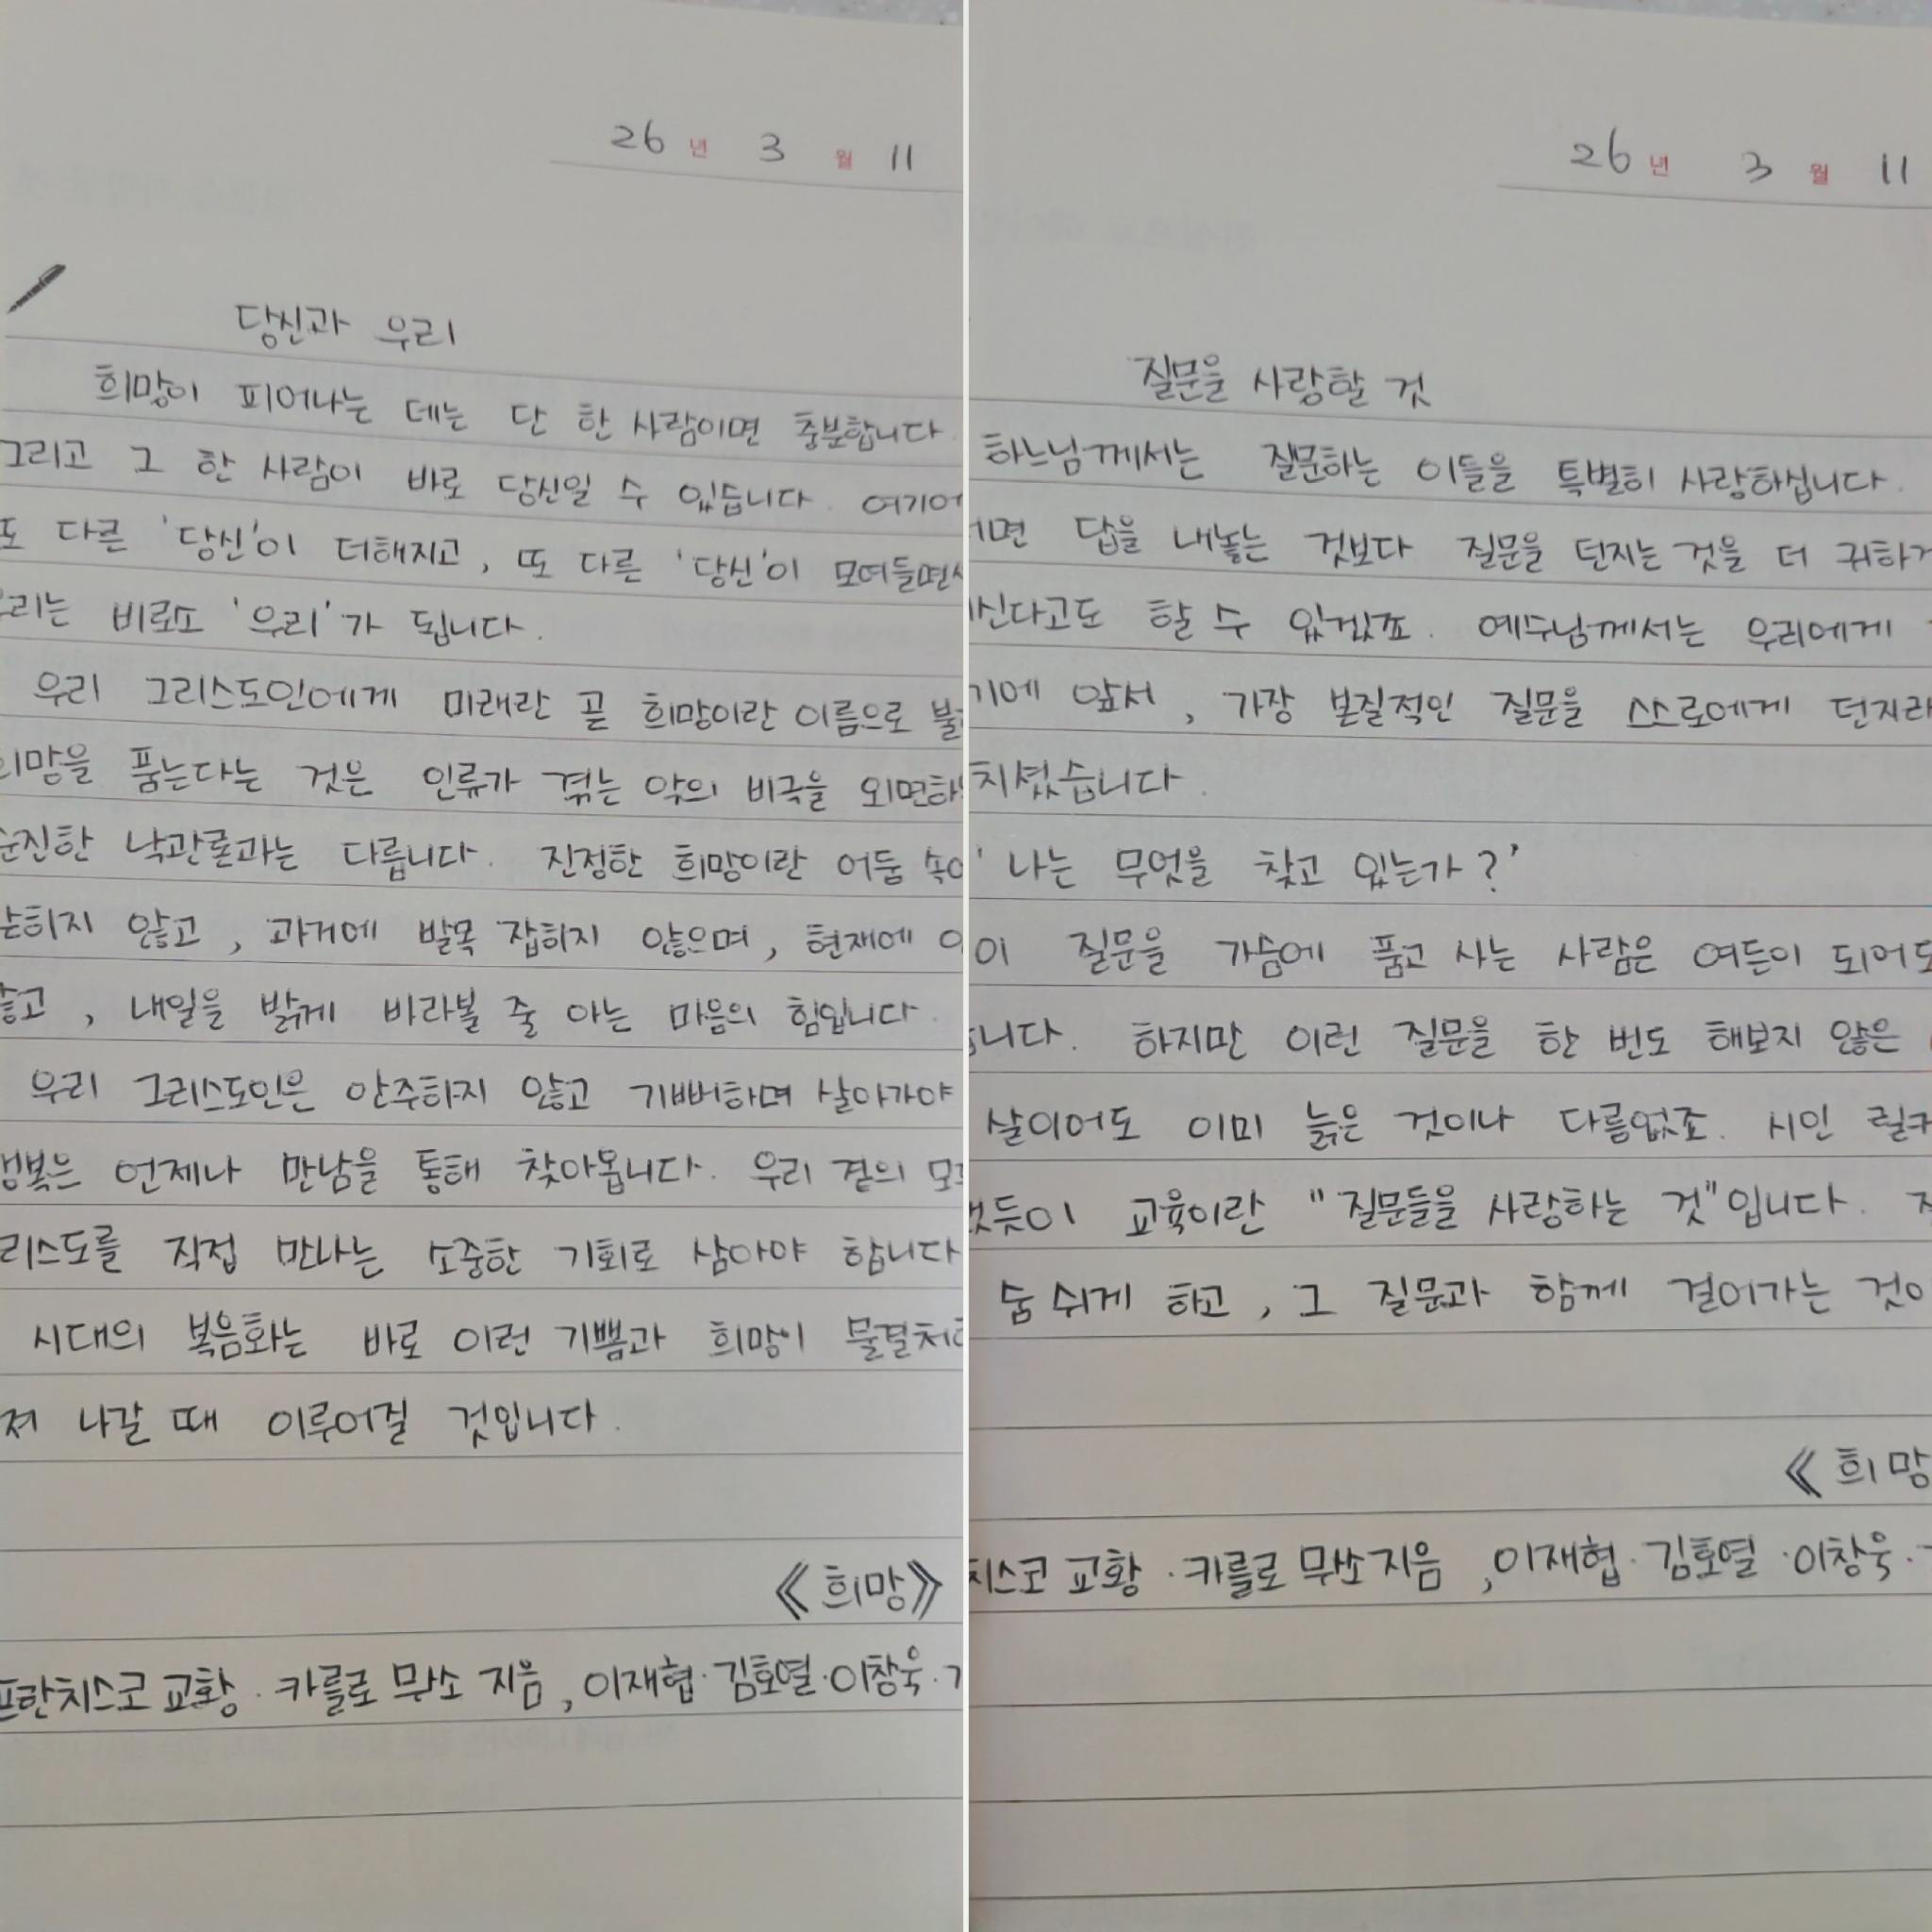 26 년 3 월 11
당신과 우리
희망이 피어나는 데는 단 한 사람이면 충분합니다.
그리고 그 한 사람이 바로 당신일 수 있습니다. 여기에
또 다른 '당신'이 더해지고, 또 다른 '당신'이 모여들면서
우리는 비로소 '우리'가 됩니다.
우리 그리스도인에게 미래란 곧 희망이란 이름으로
희망을 품는다는 것은 인류가 겪는 악의 비극을
순진한 낙관론과는 다릅니다. 진정한 희망이란 어둠 속에
않고, 과거에 발목 잡히지 않으며, 현재에
않고, 내일을 밝게 바라볼 줄 아는 마음의 힘입니다.
우리 그리스도인은 안주하지 않고 기뻐하며 살아가야
행복은 언제나 만남을 통해 찾아옵니다. 우리 곁의
리스도를 직접 만나는 소중한 기회로 삼아야 합니다
시대의 복음화는 바로 이런 기쁨과 희망이 물결처럼
져 나갈 때 이루어질 것입니다.
《희망》
프란치스코 교황·카를로 무쏘 지음, 이재협·김호열·이창욱·
26 년 3 월 11
질문을 사랑할 것
하느님께서는 질문하는 이들을 특별히 사랑하십니다.
면 답을 내놓는 것보다 질문을 던지는 것을 더 귀하게
신다고도 할 수 있겠죠. 예수님께서는 우리에게
기에 앞서, 가장 본질적인 질문을 스스로에게 던지라
치셨습니다.
'나는 무엇을 찾고 있는가?'
이 질문을 가슴에 품고 사는 사람은 여든이 되어도
니다. 하지만 이런 질문을 한 번도 해보지 않은
살이어도 이미 늙은 것이나 다름없죠. 시인 릴케
했듯이 교육이란 "질문들을 사랑하는 것"입니다.
숨 쉬게 하고, 그 질문과 함께 걸어가는 것이
《희망
치스코 교황·카를로 무쏘 지음, 이재협·김호열·이창욱·